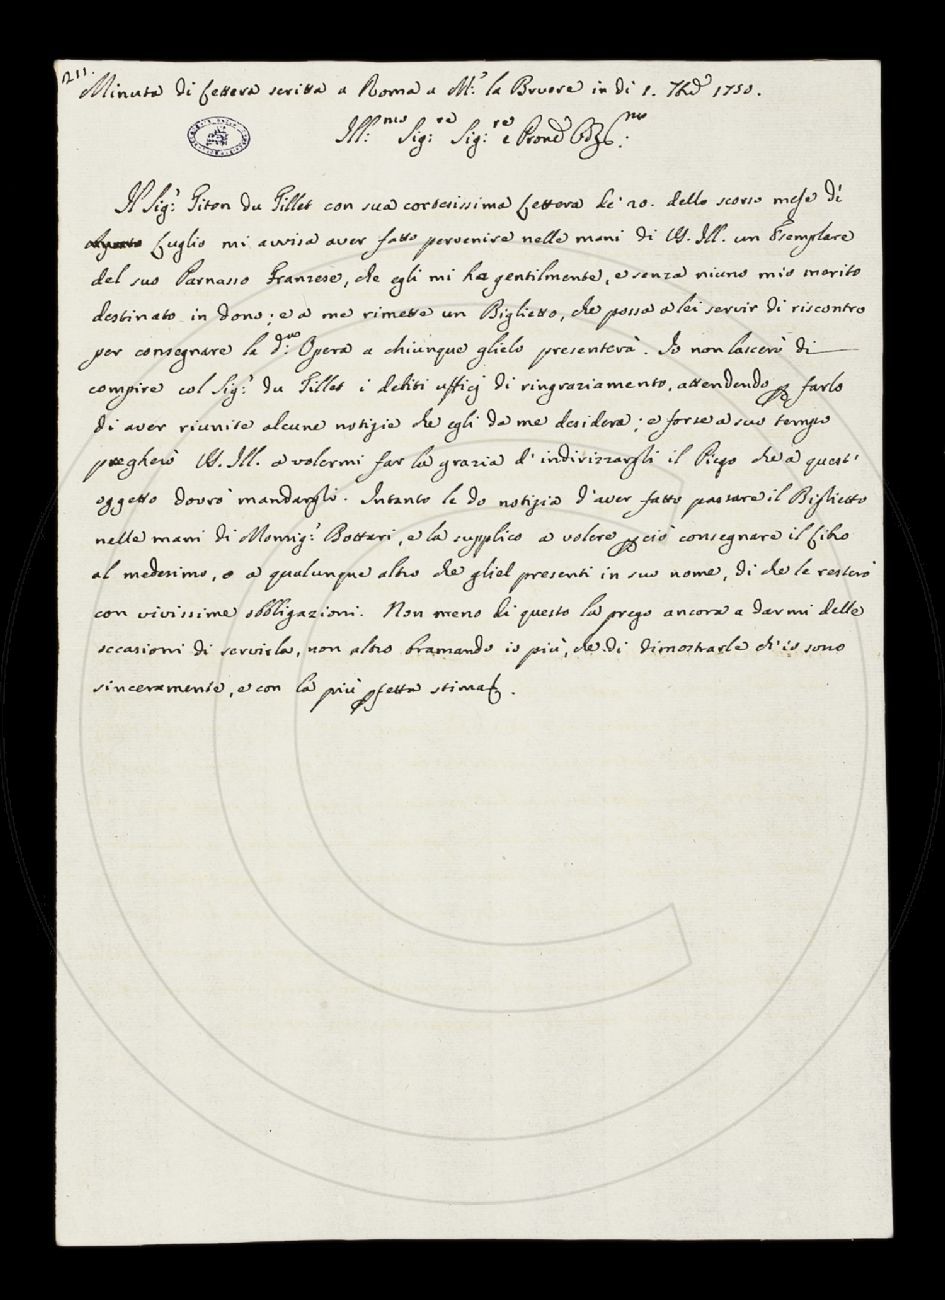 1211.
Minuta di Lettera scritta a Roma a Mr. la Bruere in di 1. 7bre 1750.
Ill:mo Sig:re Sig:re e Prone
Il Sigr. Titon du Tillet con sua cortesissima Lettera de' 20. dello scorso mese di
Agosto Luglio mi avvisa aver fatto pervenire nelle mani di VS. Ill. un Esemplare
del suo Parnasso Franzese, che egli mi ha gentilmente, e senza niuno mio merito
destinato in dono; e a me rimette un Biglietto, che possa a lei servir di riscontro
per consegnare la d:ma Opera a chiunque glielo presenterà. Io non lascerò di
compire col Sigr. du Tillet i debiti ufficj di ringraziamento, attendendo p farlo
di aver riunite alcune notizie che egli da me desidera; e forse a suo tempo
pregherò VS. Ill. a volermi far la grazia d'indirizzargli il Piego che a quest'
oggetto dovrò mandargli. Intanto le do notizia d'aver fatto passare il Biglietto
nelle mani di Monsigr. Bottari, e la supplico a volere p ciò consegnare il Libro
al medesimo, o a qualunque altro che gliel presenti in suo nome, di che le resterò
con vivissime obbligazioni. Non meno di questo la prego ancora a darmi delle
occasioni di servirla, non altro bramando io più, che di dimostrarle ch'io sono
sinceramente, e con la più pfetta stima.